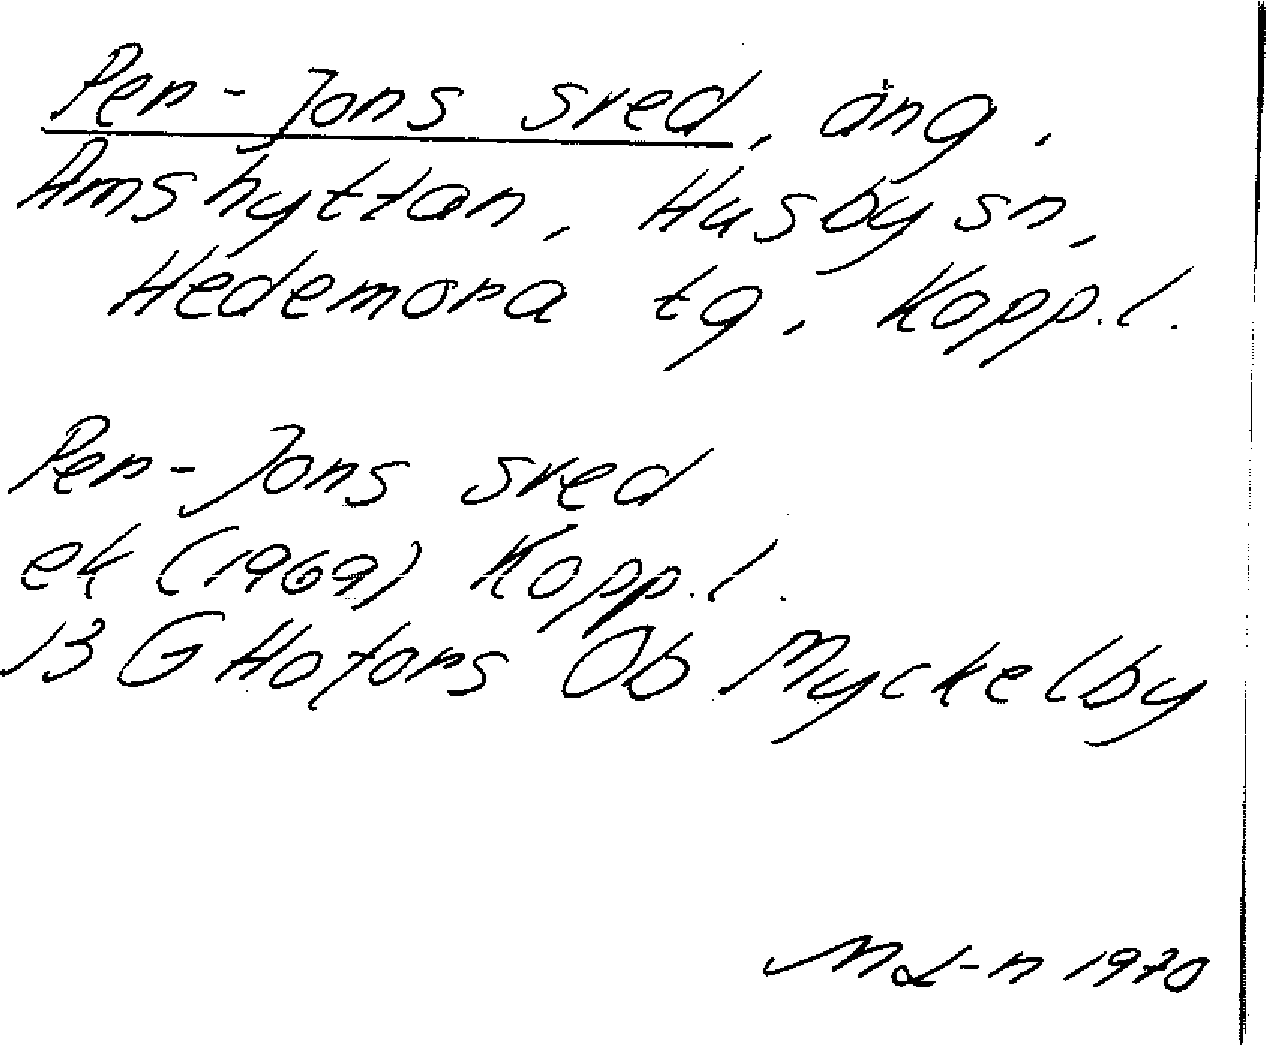 Per-Jons sved, äng,
Amshyttan, Husby sn,
Hedemora tg, Kopp.l.
Per-Jons sved
ek (1969) Kopp.l.
13 G Hofors Ob Myckelby
1970